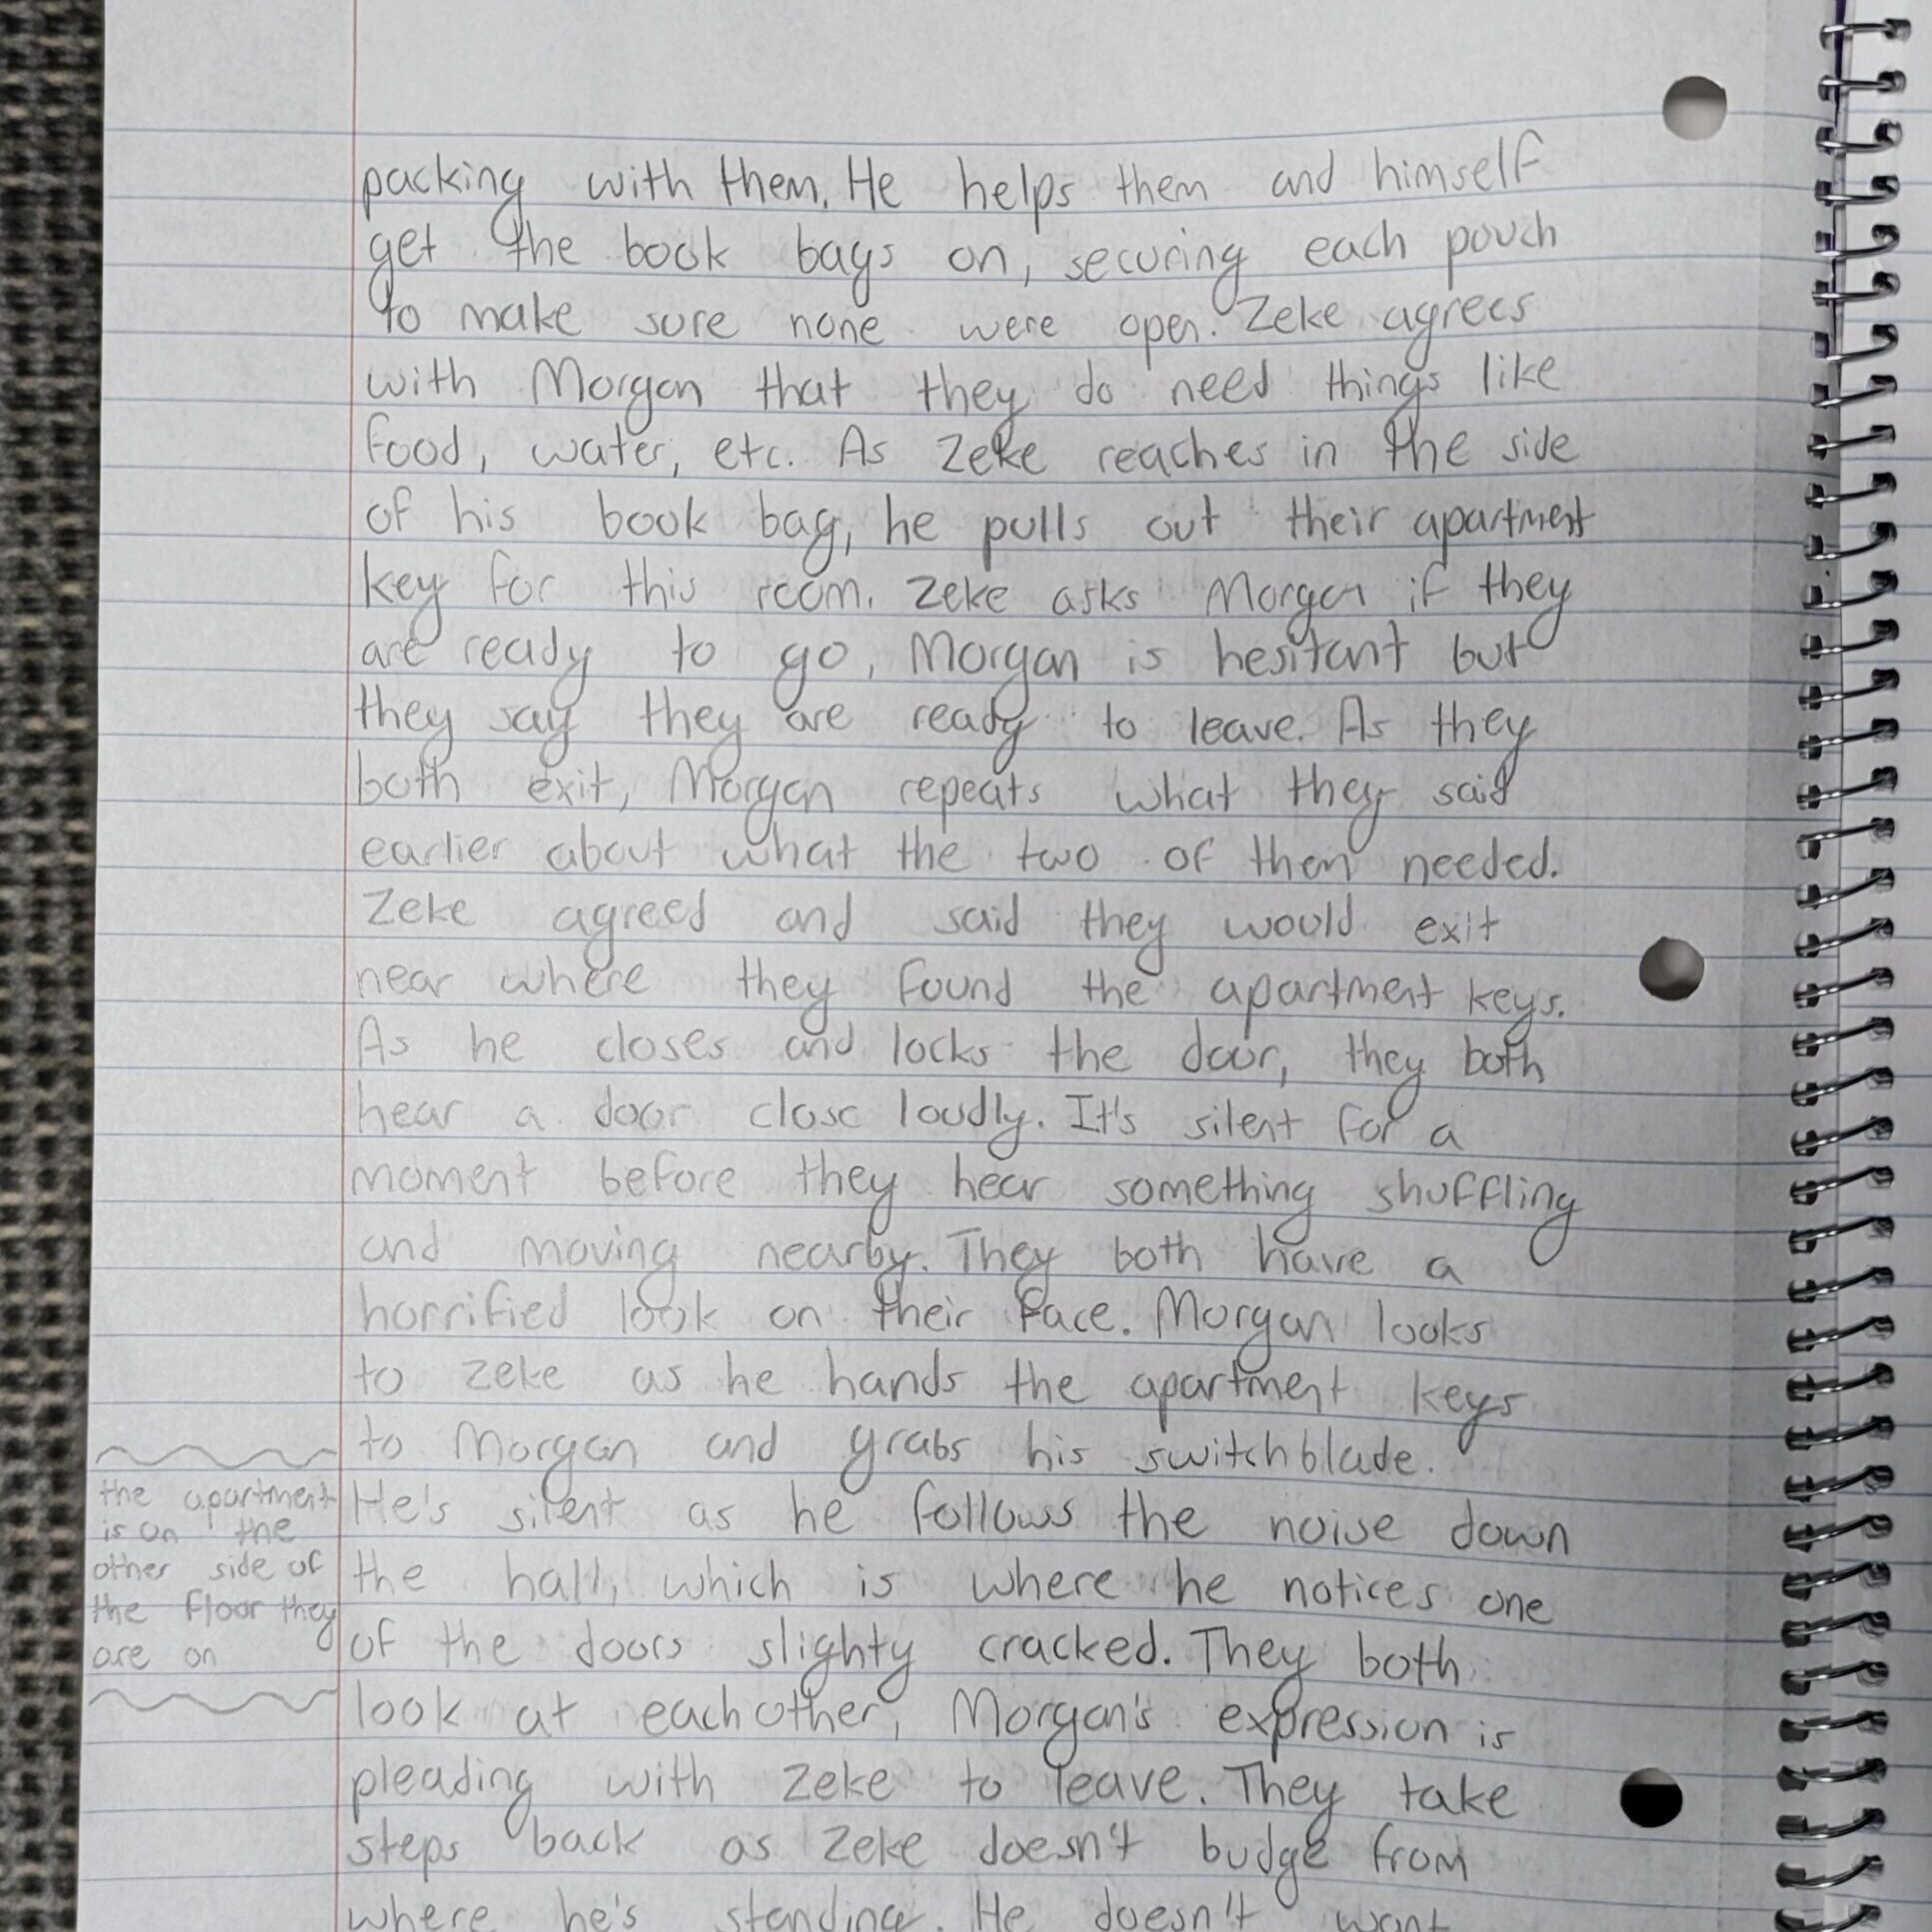 packing with them. He helps them and himself
get the book bags on, securing each pouch
to make sure none were open. Zeke agrees
with Morgan that they do need things like
food, water, etc. As Zeke reaches in the side
of his book bag, he pulls out their apartment
key for this room. Zeke asks Morgan if they
are ready to go, Morgan is hesitant but
they say they are ready to leave. As they
both exit, Morgan repeats what they said
earlier about what the two of them needed.
Zeke agreed and said they would exit
near where they found the apartment keys.
As he closes and locks the door, they both
hear a door close loudly. It's silent for a
moment before they hear something shuffling
and moving nearby. They both have a
horrified look on their face. Morgan looks
to Zeke as he hands the apartment keys
to Morgan and grabs his switchblade.
He's silent as he follows the noise down
the hall, which is where he notices one
of the doors slighty cracked. They both
look at eachother, Morgan's expression is
pleading with Zeke to leave. They take
steps back as Zeke doesn't budge from
where he's standing. He doesn't want
the apartment
is on the
other side of
the floor they
are on